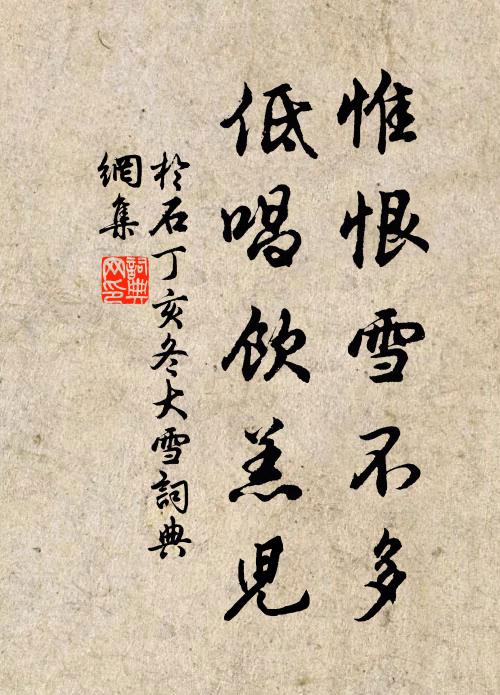 惟恨雪不多
低唱飲羔児
於石丁亥冬大雪詞典
網集
詞典
网印